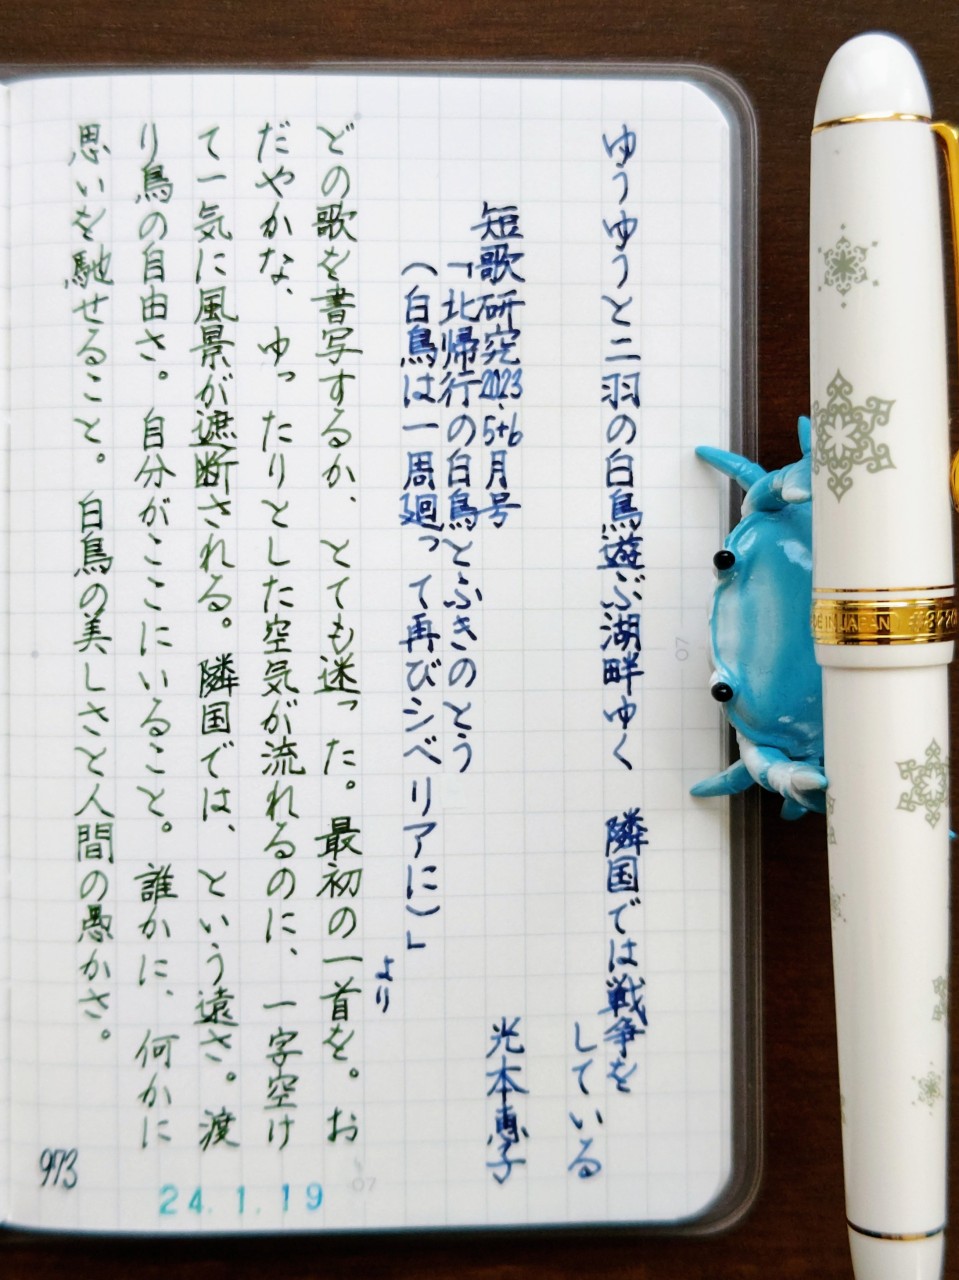 ゆうゆうと二羽の白鳥遊ぶ湖畔ゆく　隣国では戦争を
している
短歌研究2023.5+6月号
光本恵子
「北帰行の白鳥とふきのとう
(白鳥は一周廻って再びシベリアに)」
より
どの歌を書写するか、とても迷った。最初の一首を。お
だやかな、ゆったりとした空気が流れるのに、一字空け
て一気に風景が遮断される。隣国では、という遠さ。渡
り鳥の自由さ。自分がここにいること。誰かに、何かに
思いを馳せること。白鳥の美しさと人間の愚かさ。
973
24.1.19
07
07
DE IN JAPAN